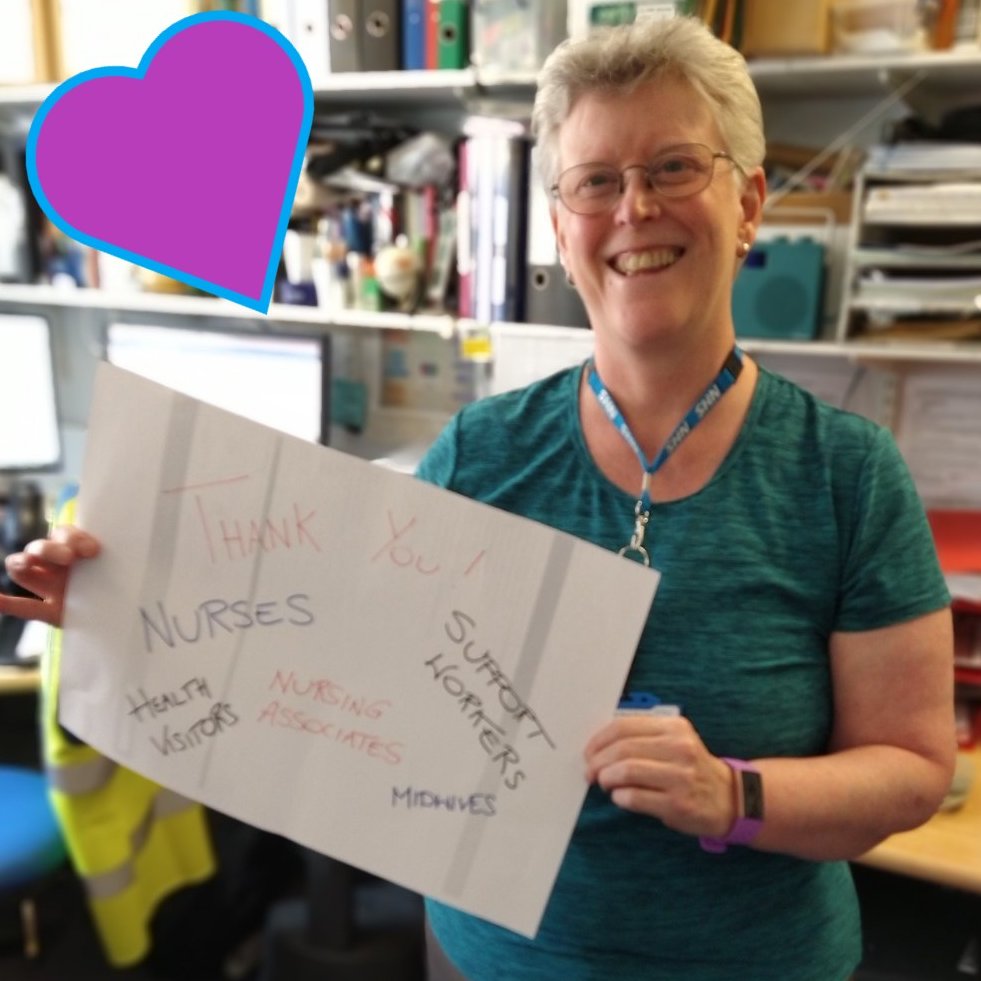 NHS
NHS
NHS
THANK YOU!
NURSES
SUPPORT
WORKERS
HEALTH
VISITORS
NURSING
ASSOCIATES
MIDWIVES